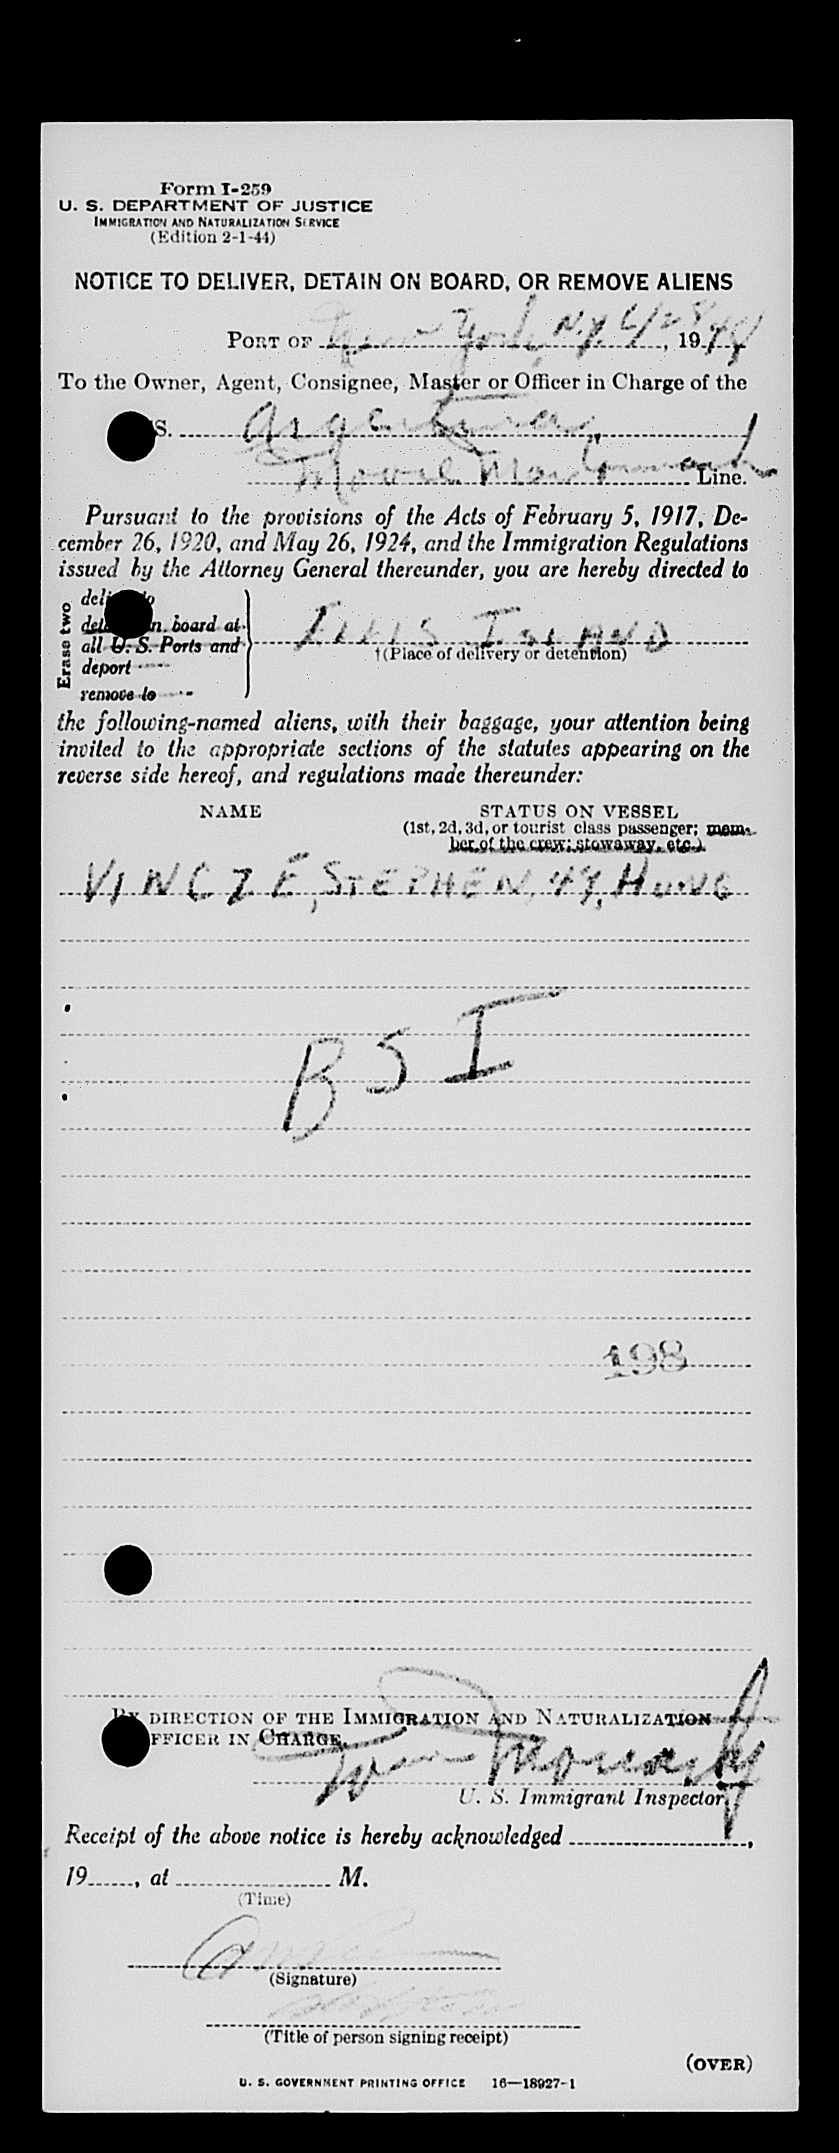 Form I-259
U. S. DEPARTMENT OF JUSTICE
IMMIGRATION AND NATURALIZATION SERVICE
(Edition 2-1-44)
NOTICE TO DELIVER, DETAIN ON BOARD, OR REMOVE ALIENS
PORT OF New York, N.Y. 6/28, 1948
To the Owner, Agent, Consignee, Master or Officer in Charge of the
S. Argentina,
Moore McCormack Line.
Pursuant to the provisions of the Acts of February 5, 1917, De-
cember 26, 1920, and May 26, 1924, and the Immigration Regulations
issued by the Attorney General thereunder, you are hereby directed to
Erase two
deliver to
detain on board at
all U. S. Ports and
deport
remove to
ELLIS ISLAND
†(Place of delivery or detention)
the following-named aliens, with their baggage, your attention being
invited to the appropriate sections of the statutes appearing on the
reverse side hereof, and regulations made thereunder:
NAME STATUS ON VESSEL
(1st, 2d, 3d, or tourist class passenger; mem-
ber of the crew; stowaway, etc.)
VINCZE, STEPHEN, 49, HUNG
BSI
198
BY DIRECTION OF THE IMMIGRATION AND NATURALIZATION
OFFICER IN CHARGE.
U. S. Immigrant Inspector.
Receipt of the above notice is hereby acknowledged ,
19 , at M.
(Time)
(Signature)
(Title of person signing receipt)
(OVER)
U. S. GOVERNMENT PRINTING OFFICE 16—18927-1